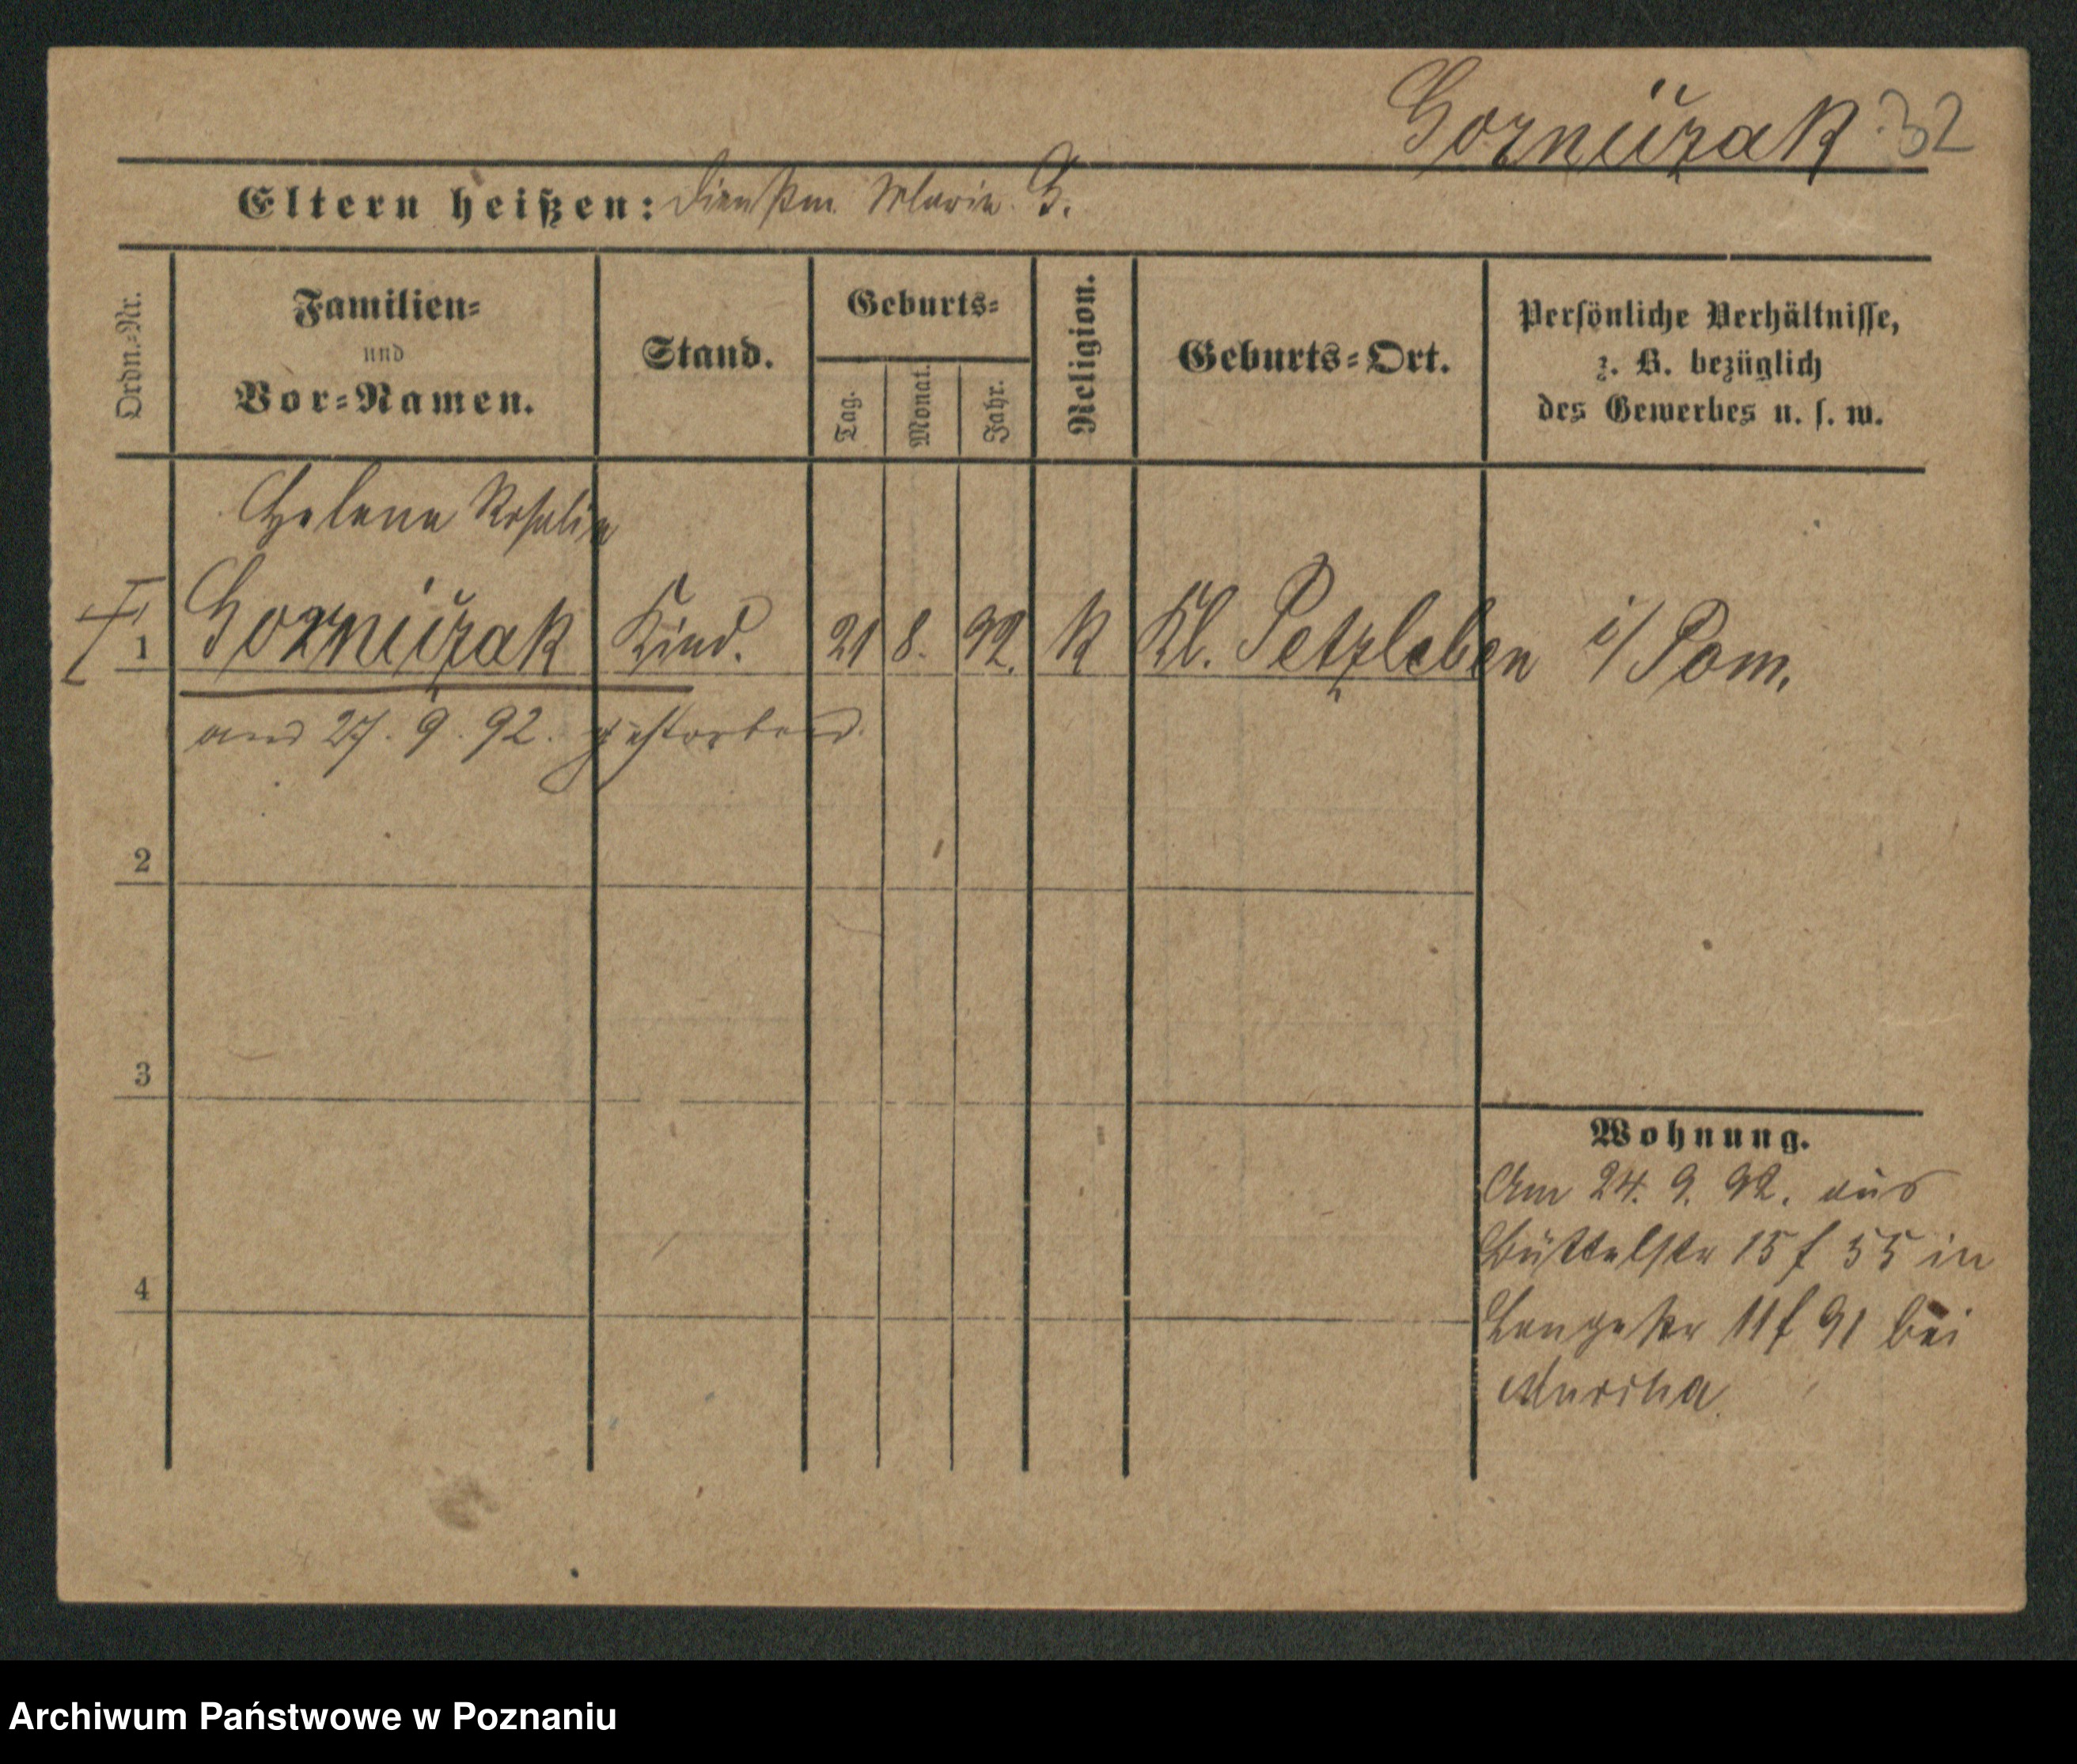 Gorniizak 32
Eltern heißen: Dienstm. Marie G.
Ordn.-Nr.
Familien-
und
Vor-Namen.
Stand.
Geburts-
Tag.
Monat.
Jahr.
Religion.
Geburts-Ort.
Persönliche Verhältnisse,
z. B. bezüglich
des Gewerbes u. s. w.
Helene Rosalie
1 Gorniizak Kind. 21 8. 92. K Kl. Petzleben i/Pom.
am 27. 9. 92. gestorben.
2
3
4
Wohnung.
Am 24. 9. 92. aus
Büttelstr 15 f 55 in
Langestr 11 f 91 bei
Archiwum Państwowe w Poznaniu